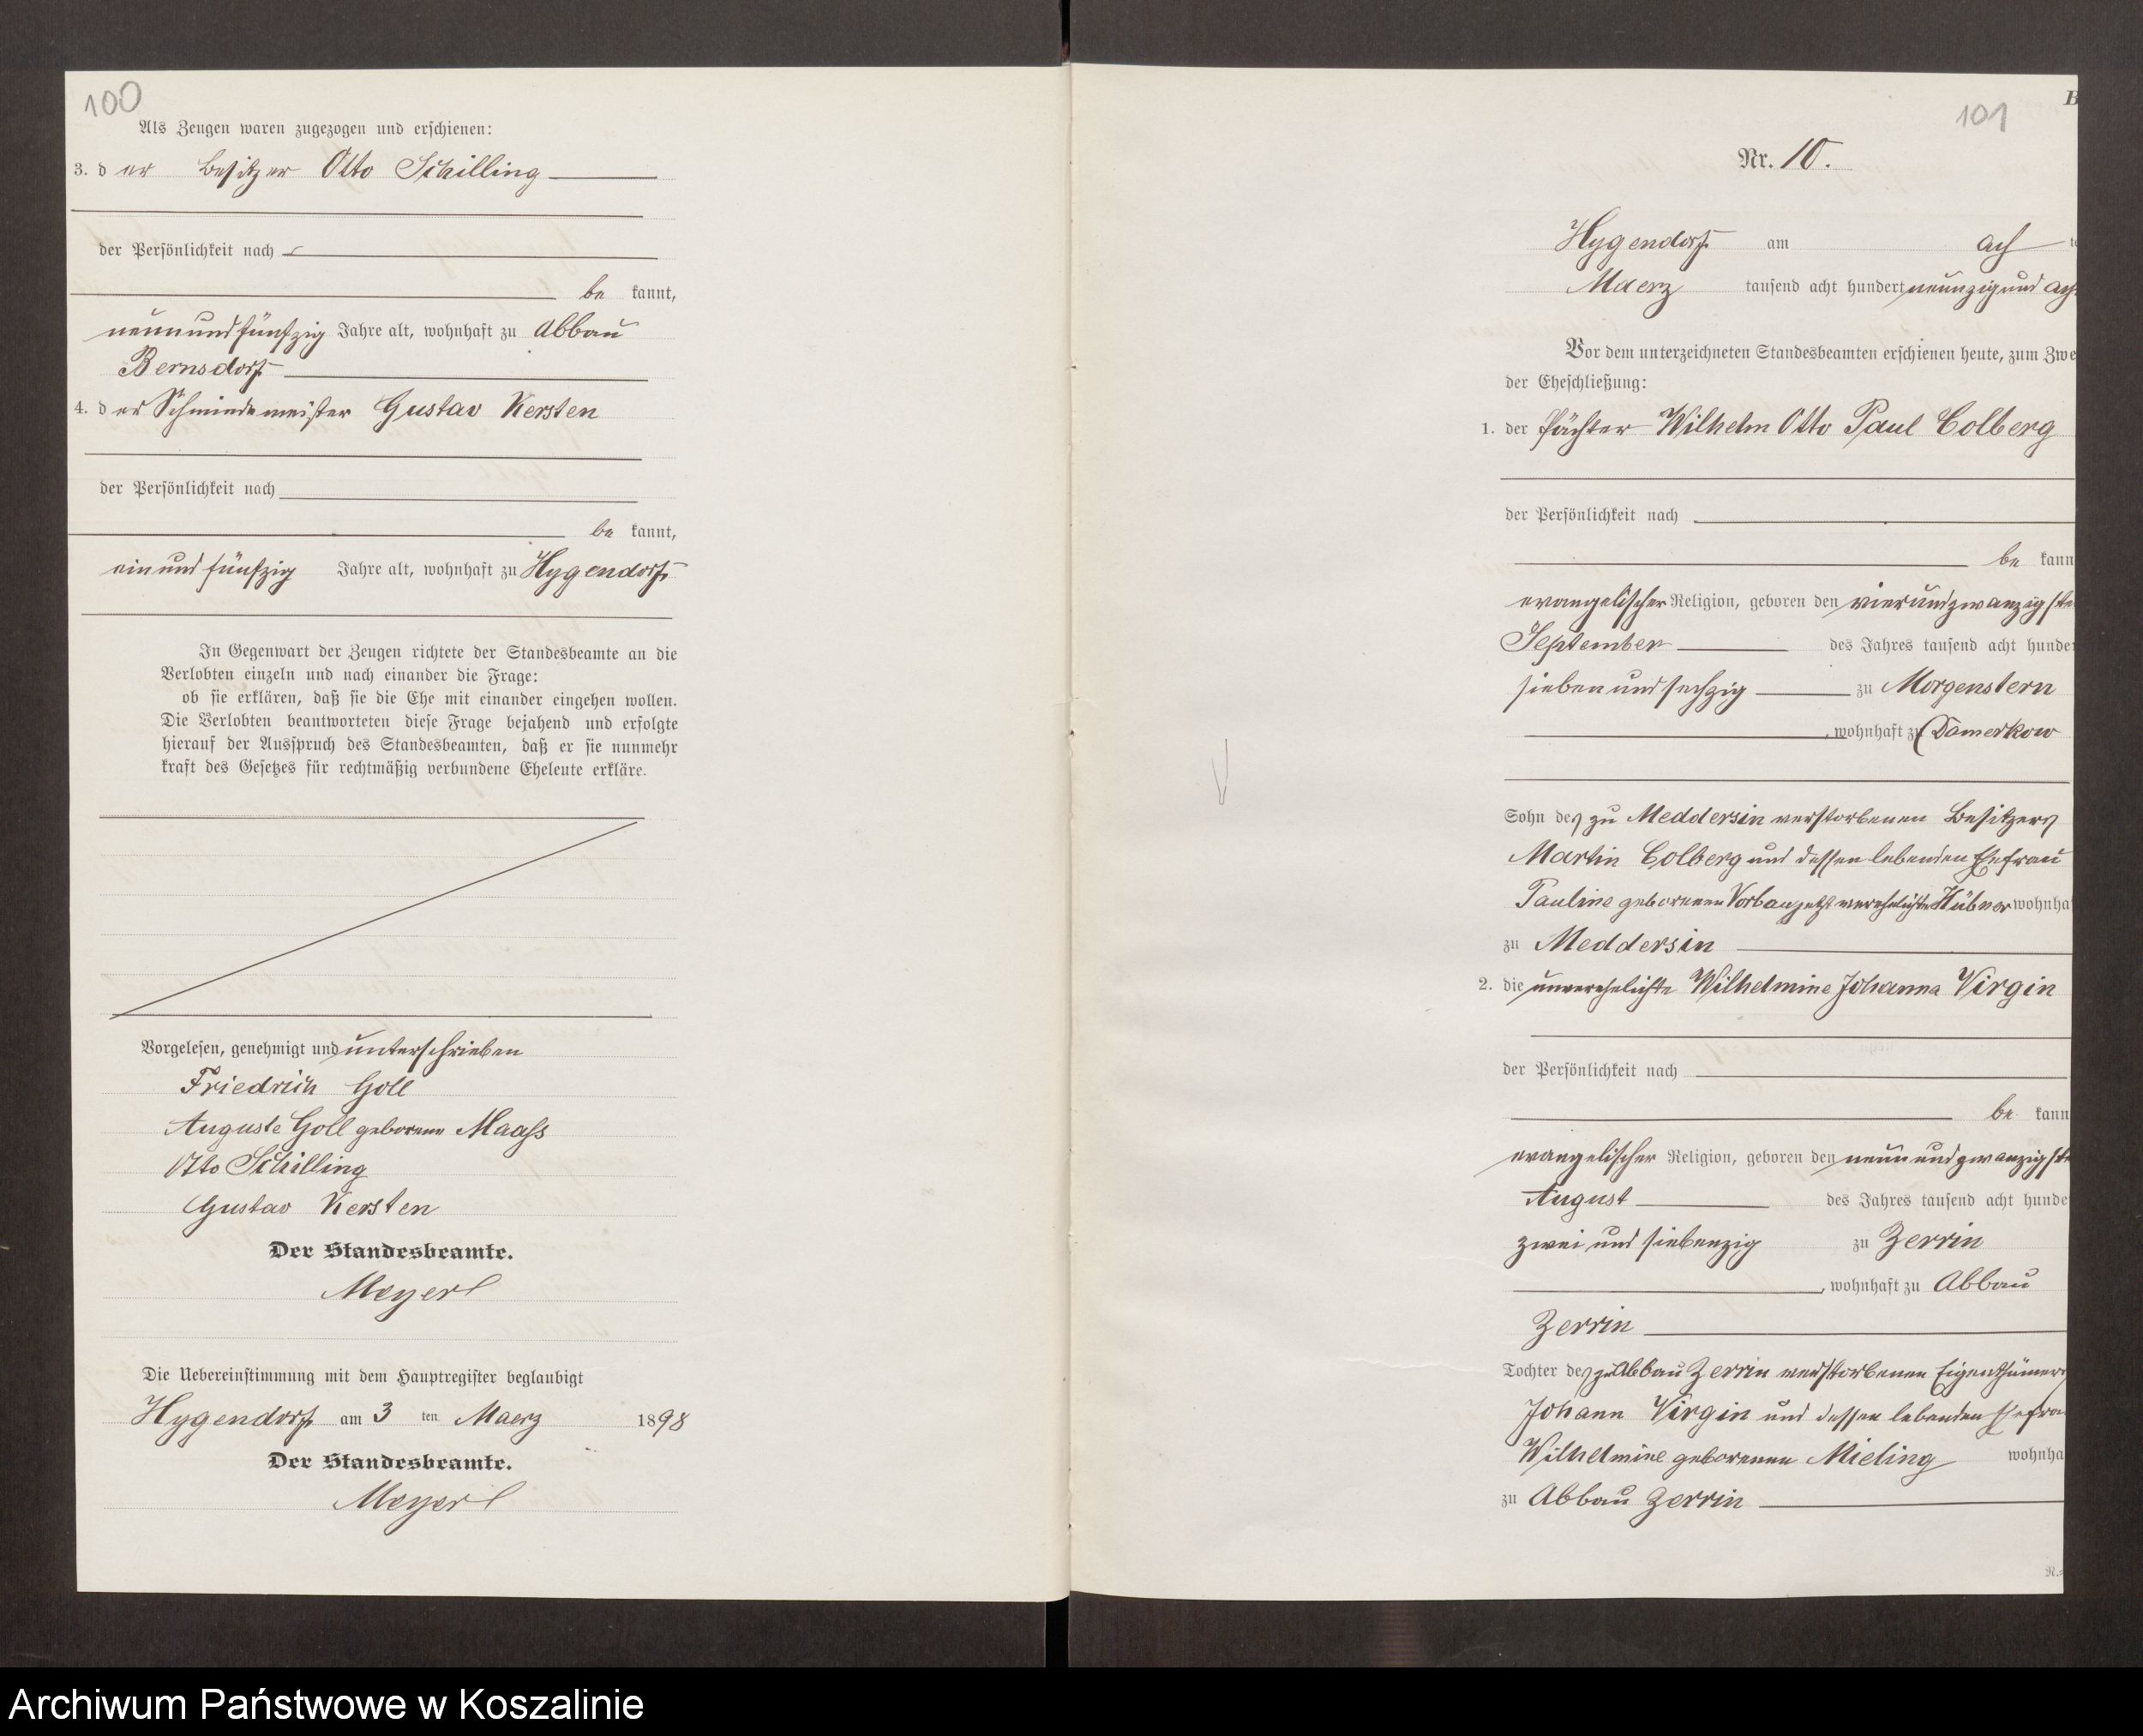 100
Als Zeugen waren zugezogen und erschienen:
3. der Besitzer Otto Schilling
der Persönlichkeit nach
be kannt,
neunundfünfzig Jahre alt, wohnhaft zu Abbau
Bernsdorf
4. der Schmiedemeister Gustav Kersten
der Persönlichkeit nach
be kannt,
einundfünfzig Jahre alt, wohnhaft zu Hygendorf
In Gegenwart der Zeugen richtete der Standesbeamte an die
Verlobten einzeln und nach einander die Frage:
ob sie erklären, daß sie die Ehe mit einander eingehen wollen.
Die Verlobten beantworteten diese Frage bejahend und erfolgte
hierauf der Ausspruch des Standesbeamten, daß er sie nunmehr
kraft des Gesetzes für rechtmäßig verbundene Eheleute erkläre.
Vorgelesen, genehmigt und unterschrieben
Friedrich Goll
Auguste Goll geborene Maaß
Otto Schilling
Gustav Kersten
Der Standesbeamte.
Meyert
Die Uebereinstimmung mit dem Hauptregister beglaubigt
Hygendorf am 3 ten Maerz 1898
Der Standesbeamte.
Meyert
B
101
Nr. 10.
Hygendorf am ach te
Maerz tausend acht hundert neunzig und ach
Vor dem unterzeichneten Standesbeamten erschienen heute, zum Zwe
der Eheschließung:
1. der Pächter Wilhelm Otto Paul Colberg
der Persönlichkeit nach
be kann
evangelischer Religion, geboren den vierundzwanzigste
September des Jahres tausend acht hunder
siebenundsechzig zu Morgenstern
, wohnhaft zu Damerkow
Sohn des zu Meddersin verstorbenen Besitzers
Martin Colberg und dessen lebenden Ehefrau
Pauline geborenen Vorbau jetzt verehelichte Hübner wohnha
zu Meddersin
2. die unverehelichte Wilhelmine Johanna Virgin
der Persönlichkeit nach
be kann
evangelischer Religion, geboren den neunundzwanzigste
August des Jahres tausend acht hunde
zwei und siebenzig zu Zerrin
, wohnhaft zu Abbau
Zerrin
Tochter des zu Abbau Zerrin verstorbenen Eigenthümers
Johann Virgin und dessen lebenden Ehefra
Wilhelmine geborenen Mieling wohnha
zu Abbau Zerrin
Archiwum Państwowe w Koszalinie